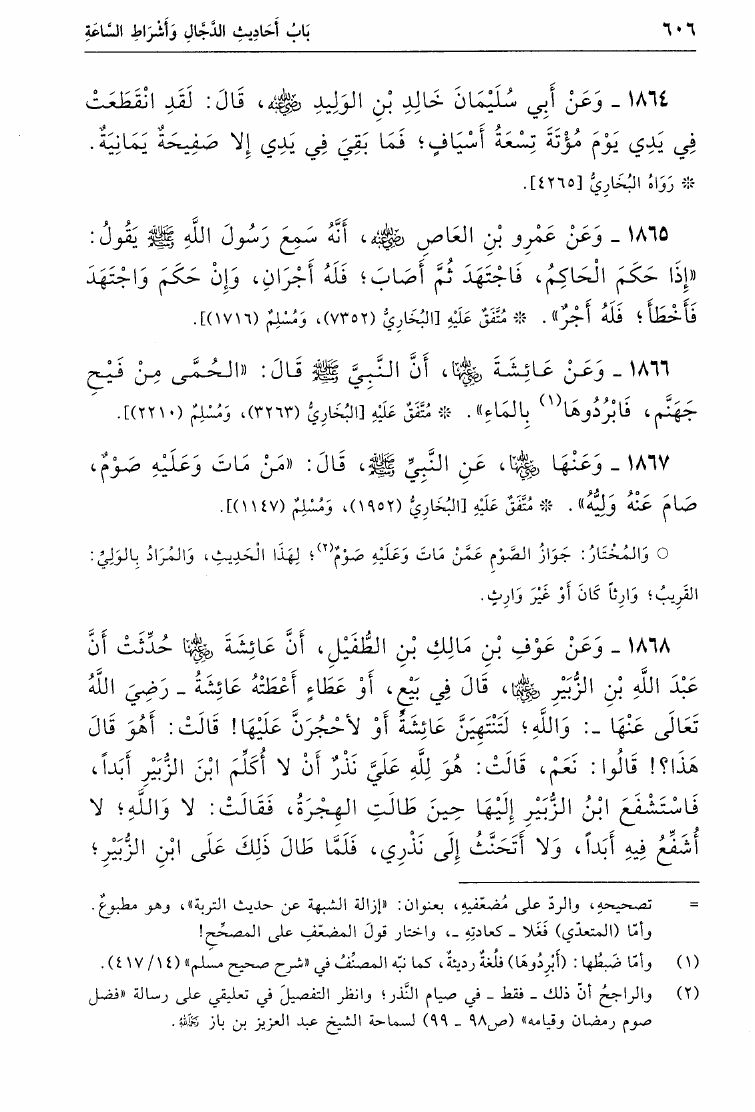 ٦٠٦ بَابُ أَحَادِيثِ الدَّجَّالِ وَأَشْرَاطِ السَّاعَةِ
١٨٦٤ ـ وَعَنْ أَبِي سُلَيْمَانَ خَالِدِ بْنِ الوَلِيدِ رضي الله عنه، قَالَ: لَقَدِ انْقَطَعَتْ
فِي يَدِي يَوْمَ مُؤْتَةَ تِسْعَةُ أَسْيَافٍ؛ فَمَا بَقِيَ فِي يَدِي إِلا صَفِيحَةٌ يَمَانِيَةٌ.
* رَوَاهُ البُخَارِيُّ [٤٢٦٥].
١٨٦٥ ـ وَعَنْ عَمْرِو بْنِ العَاصِ رضي الله عنه، أَنَّهُ سَمِعَ رَسُولَ اللَّهِ ﷺ يَقُولُ:
«إِذَا حَكَمَ الْحَاكِمُ، فَاجْتَهَدَ ثُمَّ أَصَابَ؛ فَلَهُ أَجْرَانِ، وَإِنْ حَكَمَ وَاجْتَهَدَ
فَأَخْطَأَ؛ فَلَهُ أَجْرٌ». * مُتَّفَقٌ عَلَيْهِ [البُخَارِيُّ (٧٣٥٢)، وَمُسْلِمٌ (١٧١٦)].
١٨٦٦ ـ وَعَنْ عَائِشَةَ رضي الله عنها، أَنَّ النَّبِيَّ ﷺ قَالَ: «الْحُمَّى مِنْ فَيْحِ
جَهَنَّم، فَابْرُدُوهَا(١) بِالمَاءِ». * مُتَّفَقٌ عَلَيْهِ [البُخَارِيُّ (٣٢٦٣)، وَمُسْلِمٌ (٢٢١٠)].
١٨٦٧ ـ وَعَنْهَا رضي الله عنها، عَنِ النَّبِيِّ ﷺ، قَالَ: «مَنْ مَاتَ وَعَلَيْهِ صَوْمٌ،
صَامَ عَنْهُ وَلِيُّهُ». * مُتَّفَقٌ عَلَيْهِ [البُخَارِيُّ (١٩٥٢)، وَمُسْلِمٌ (١١٤٧)].
○ وَالمُخْتَارُ: جَوَازُ الصَّوْمِ عَمَّنْ مَاتَ وَعَلَيْهِ صَوْمٌ(٢)؛ لِهَذَا الْحَدِيثِ، وَالمُرَادُ بِالوَلِيِّ:
القَرِيبُ؛ وَارِثاً كَانَ أَوْ غَيْرَ وَارِثٍ.
١٨٦٨ ـ وَعَنْ عَوْفِ بْنِ مَالِكِ بْنِ الطُّفَيْلِ، أَنَّ عَائِشَةَ رضي الله عنها حُدِّثَتْ أَنَّ
عَبْدَ اللَّهِ بْنِ الزُّبَيْرِ رضي الله عنهما، قَالَ فِي بَيْعٍ، أَوْ عَطَاءٍ أَعْطَتْهُ عَائِشَةُ ـ رَضِيَ اللَّهُ
تَعَالَى عَنْهَا ـ: وَاللَّهِ؛ لَتَنْتَهِيَنَّ عَائِشَةُ أَوْ لأَحْجُرَنَّ عَلَيْهَا! قَالَتْ: أَهُوَ قَالَ
هَذَا؟! قَالُوا: نَعَمْ، قَالَتْ: هُوَ لِلَّهِ عَلَيَّ نَذْرٌ أَنْ لا أُكَلِّمَ ابْنَ الزُّبَيْرِ أَبَداً،
فَاسْتَشْفَعَ ابْنُ الزُّبَيْرِ إِلَيْهَا حِينَ طَالَتِ الهِجْرَةُ، فَقَالَتْ: لا وَاللَّهِ؛ لا
أُشَفِّعُ فِيهِ أَبَداً، وَلا أَتَحَنَّثُ إِلَى نَذْرِي، فَلَمَّا طَالَ ذَلِكَ عَلَى ابْنِ الزُّبَيْرِ؛
= تصحيحهِ، والردّ على مُضعّفيهِ، بعنوان: «إزالة الشبهة عن حديث التربة»، وهو مطبوعٌ.
وأمّا (المتعدّي) فَغَلا ـ كعادتِهِ ـ، واختار قولَ المضعّفِ على المصحِّحِ!
(١) وأمّا ضَبطُها: (أَبْرِدُوهَا) فلُغةٌ رديئةٌ، كما نبّه المصنِّفُ في «شرح صحيح مسلم» (٤١٧/١٤).
(٢) والراجحُ أنّ ذلك ـ فقط ـ في صيام النَّذر؛ وانظر التفصيلَ في تعليقي على رسالة «فضل
صوم رمضان وقيامه» (ص٩٨ ـ ٩٩) لسماحة الشيخ عبد العزيز بن باز رحمه الله.